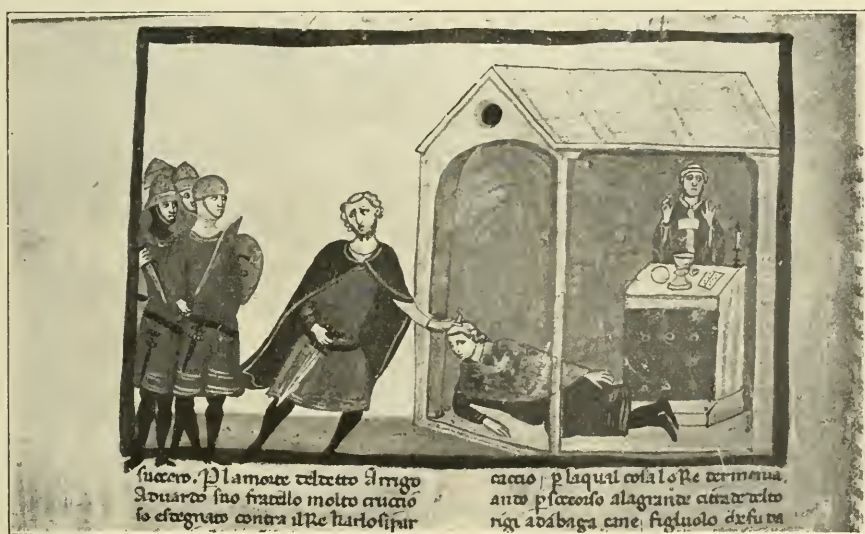 succero. P la morte del detto Arrigo
Aduardo suo fratello molto cruccio
so esdegnato contra il Re karlo si par
caccio, p la qual cosa lo Re dermenia.
ando p soccorso ala grande citta de
rigi adabaga cane figluolo che fu da